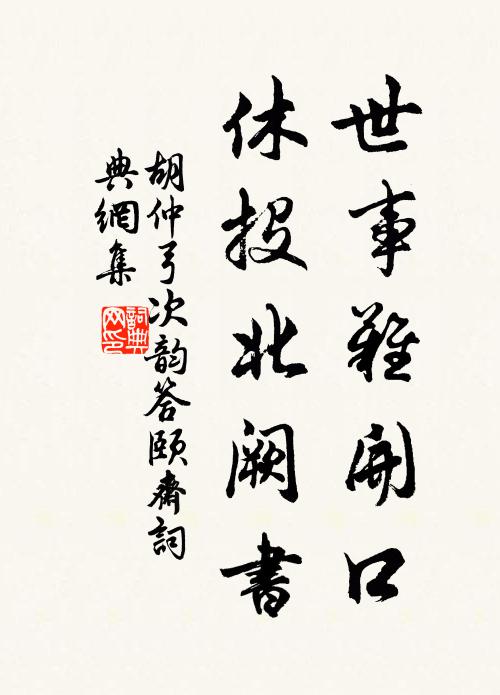 世事難開口
休投北闕書
胡仲弓次韵答頤齋詞
典網集
詞典
网印